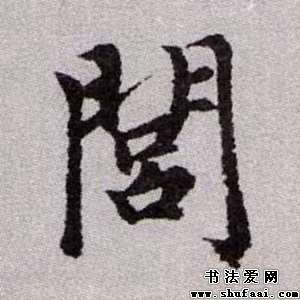 閭
书法爱网
www.shufaai.com